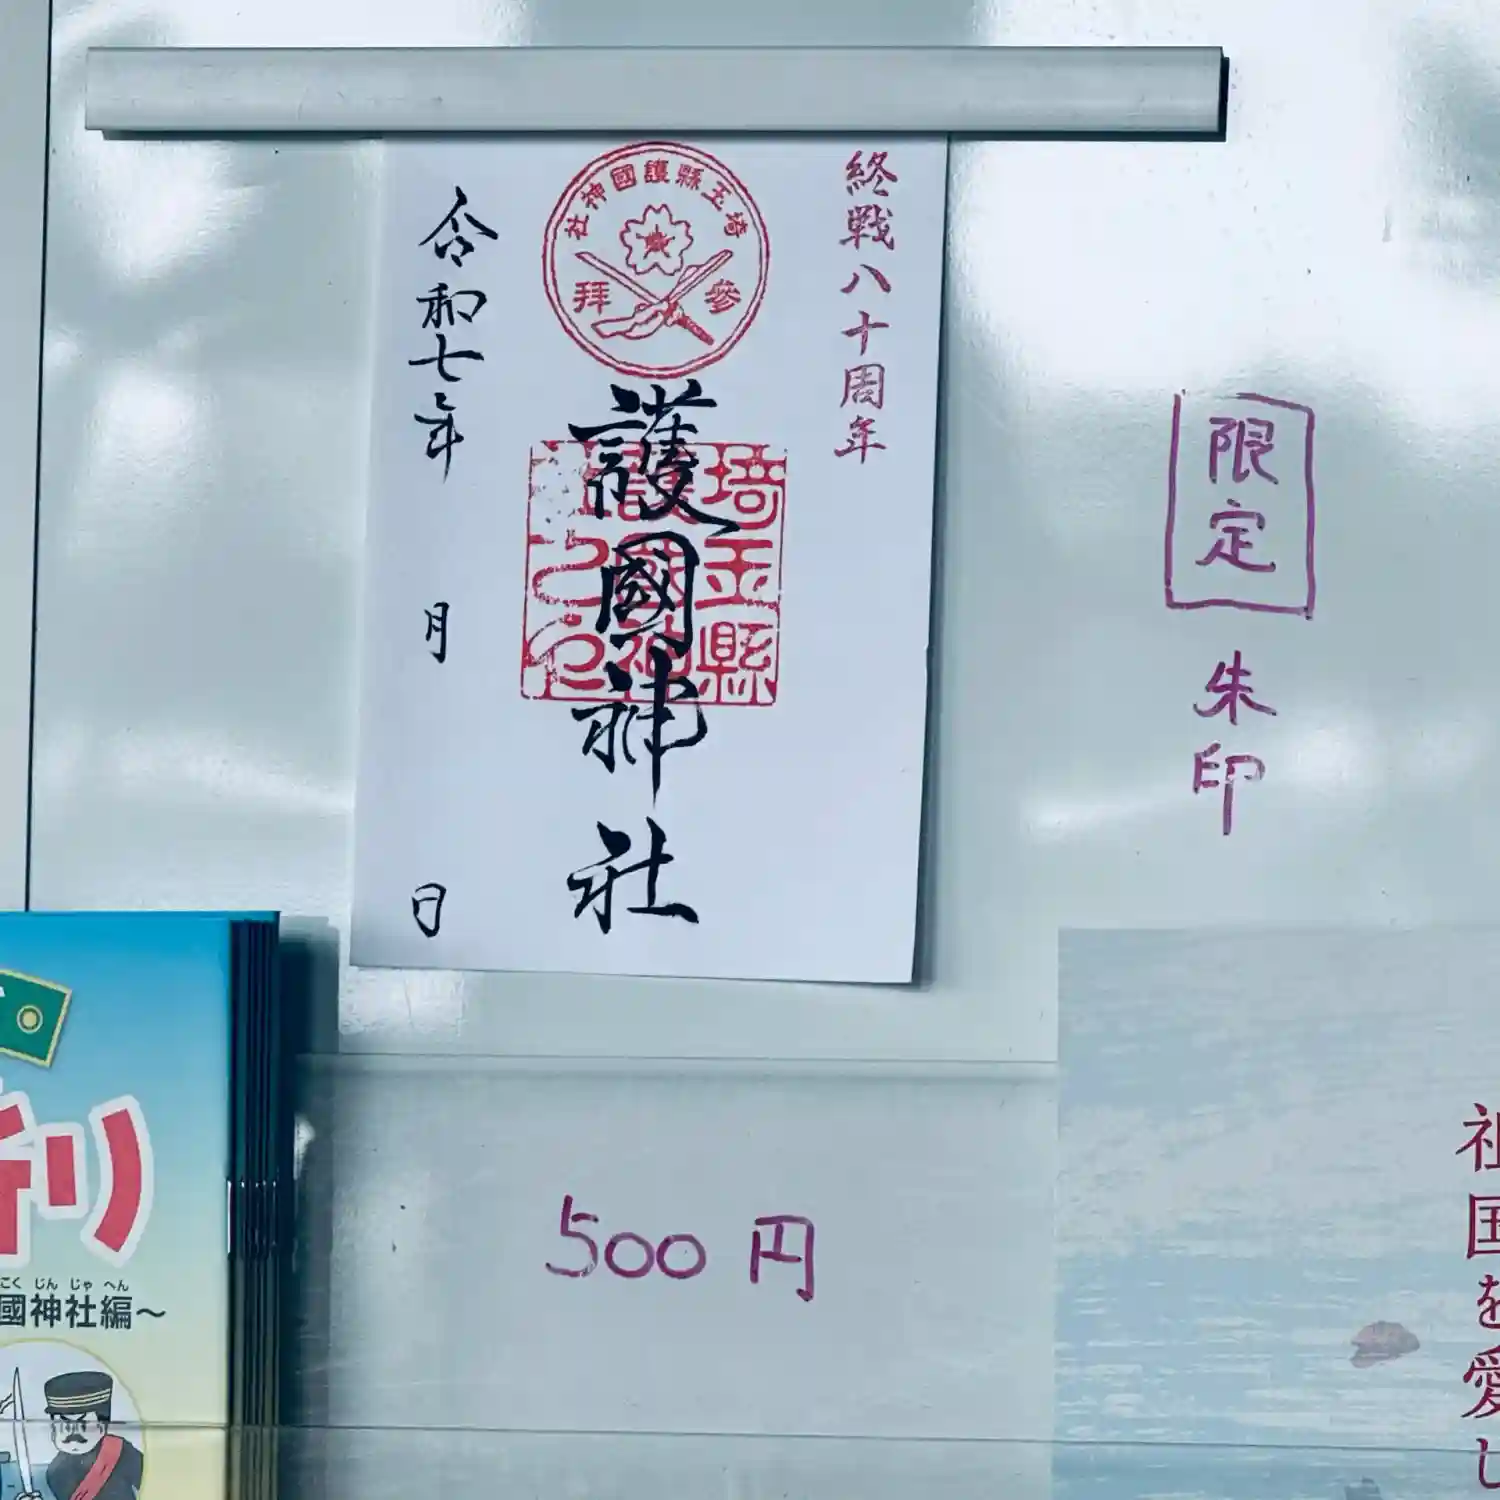 終戦八十周年
埼玉縣護國神社
參拜
護國神社
埼玉縣
令和七年 月 日
限定
朱印
500円
祈り
こく じん じゃ へん
國神社編～
祖国を愛し